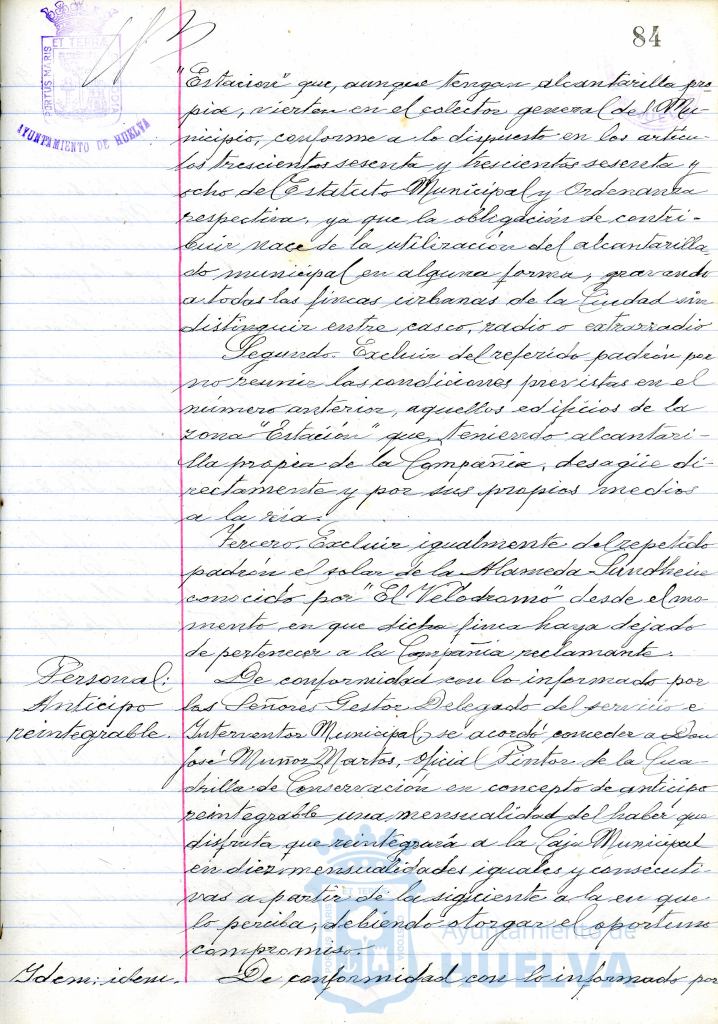 84
ET TERRÆ
PORTUS MARIS
CUSTODIA
AYUNTAMIENTO DE HUELVA
"Estacion" que, aunque tengan alcantarilla pro
pia, vierten en el colector general del Mu-
nicipio, conforme a lo dispuesto en los artícu-
los trescientos sesenta y trescientos sesenta y
ocho del Estatuto Municipal y Ordenanza
respectiva, ya que la obligación de contri-
buir nace de la utilización del alcantarilla-
do municipal en alguna forma, gravando
a todas las fincas urbanas de la Ciudad sin
distinguir entre casco, radio o extrarradio
Segundo. Excluir del referido padrón por
no reunir las condiciones previstas en el
número anterior, aquellos edificios de la
zona "Estación" que, teniendo alcantari-
lla propia de la Compañía, desagüe di-
rectamente y por sus propios medios
a la ría.
Tercero. Excluir igualmente del repetido
padrón el solar de la Alameda Sundheim
conocido por "El Velodromo" desde el mo-
mento, en que dicha finca haya dejado
de pertenecer a la Compañía reclamante.
Personal:
Anticipo
reintegrable.
De conformidad con lo informado por
los Señores Gestor Delegado del servicio e
Interventor Municipal, se acordó conceder a Don
José Muñoz Martos, oficial Pintor de la Cua-
drilla de Conservación en concepto de anticipo
reintegrable una mensualidad del haber que
disfruta que reintegrará a la Caja Municipal
en diez mensualidades iguales y consecuti-
vas a partir de la siguiente a la en que
lo perciba, debiendo otorgar el oportuno
compromiso.
Idem: idem.
De conformidad con lo informado por
Ayuntamiento de
HUELVA